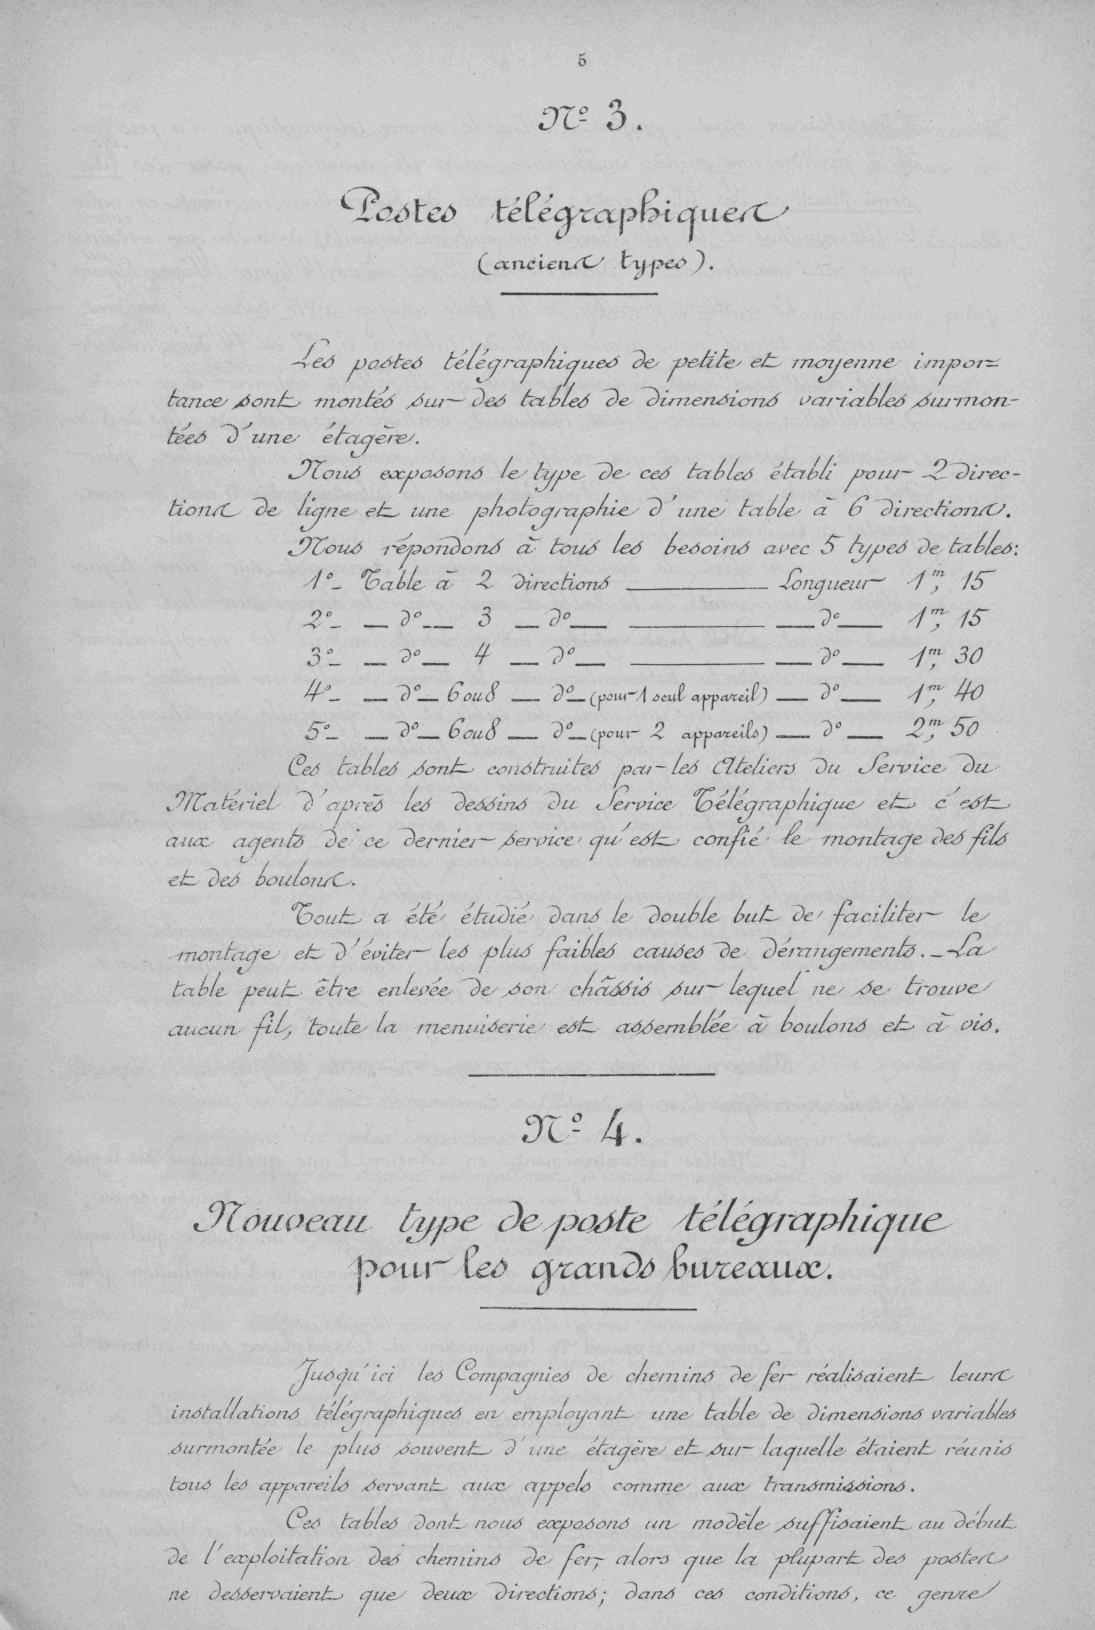 5
Nº 3.
Postes télégraphiques
(anciens types).
Les postes télégraphiques de petite et moyenne impor=
tance sont montés sur des tables de dimensions variables surmon-
tées d'une étagère.
Nous exposons le type de ces tables établi pour 2 direc-
tions de ligne et une photographie d'une table à 6 directions.
Nous répondons à tous les besoins avec 5 types de tables:
1º_ Table à 2 directions ______ Longueur 1m, 15
2º_ _ dº_ 3 _ dº_ ______ _ dº_ 1m, 15
3º_ _ dº_ 4 _ dº_ ______ _ dº_ 1m, 30
4º_ _ dº_ 6 ou 8 _ dº_ (pour 1 seul appareil) _ dº_ 1m, 40
5º_ _ dº_ 6 ou 8 _ dº_ (pour 2 appareils) _ dº_ 2m, 50
Ces tables sont construites par les Ateliers du Service du
Matériel d'après les dessins du Service Télégraphique et c'est
aux agents de ce dernier service qu'est confié le montage des fils
et des boulons.
Tout a été étudié dans le double but de faciliter le
montage et d'éviter les plus faibles causes de dérangements._ La
table peut être enlevée de son châssis sur lequel ne se trouve
aucun fil, toute la menuiserie est assemblée à boulons et à vis.
Nº 4.
Nouveau type de poste télégraphique
pour les grands bureaux.
Jusqu'ici les Compagnies de chemins de fer réalisaient leurs
installations télégraphiques en employant une table de dimensions variables
surmontée le plus souvent d'une étagère et sur laquelle étaient réunis
tous les appareils servant aux appels comme aux transmissions.
Ces tables dont nous exposons un modèle suffisaient au début
de l'exploitation des chemins de fer, alors que la plupart des postes
ne desservaient que deux directions; dans ces conditions, ce genre